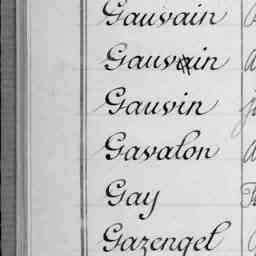 Gauvain
Gauvain
Gauvin
Gavalon
Gay
Gazengel